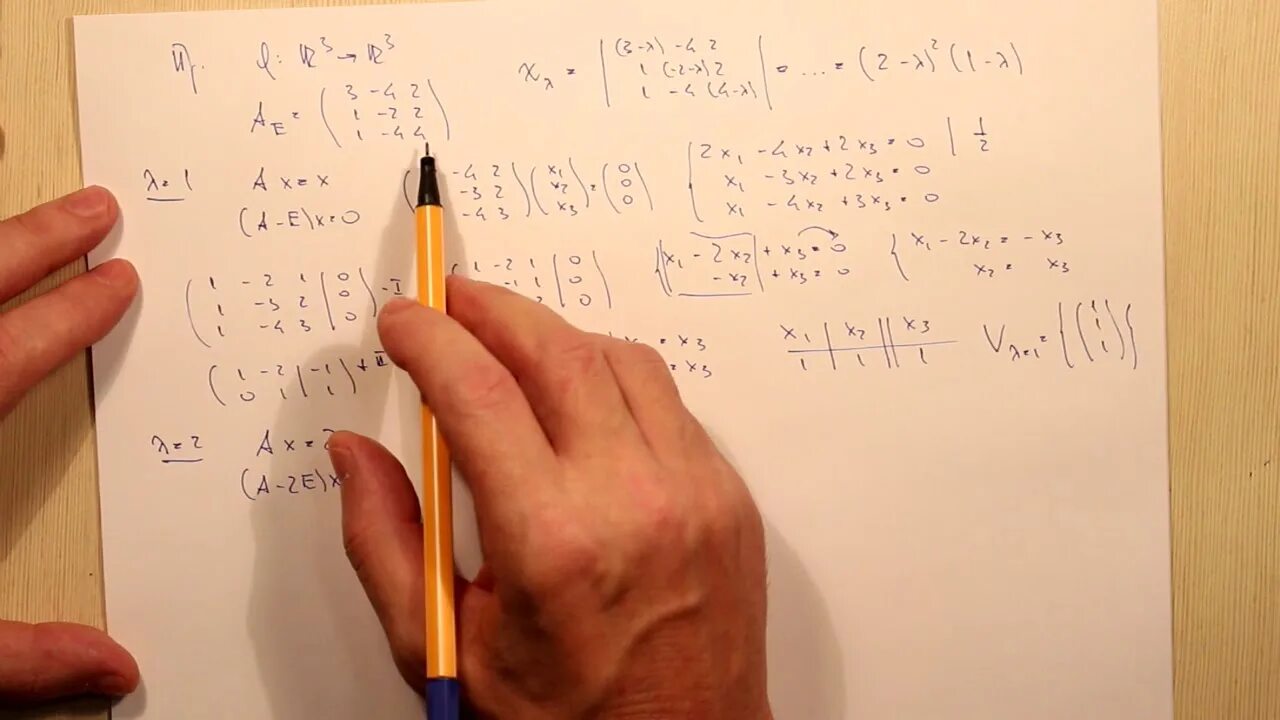 Пр. φ: ℝ³ → ℝ³
A_E = ( 3 -4 2 ; 1 -2 2 ; 1 -4 4 )
χ_λ = | (3-λ) -4 2 ; 1 (-2-λ) 2 ; 1 -4 (4-λ) | = ... = (2-λ)² (1-λ)
λ=1 A x = x
(A-E)x=0
-4 2 ; -3 2 ; -4 3 ) ( x₁ ; x₂ ; x₃ ) = ( 0 ; 0 ; 0 )
{ 2x₁ - 4x₂ + 2x₃ = 0 | 1/2
x₁ - 3x₂ + 2x₃ = 0
x₁ - 4x₂ + 3x₃ = 0
( 1 -2 1 | 0 ; 1 -3 2 | 0 ; 1 -4 3 | 0 ) -I
1 -2 1 | 0 ; -1 1 | 0 ; | 0 )
{ x₁ - 2x₂ + x₃ = 0
-x₂ + x₃ = 0
{ x₁ - 2x₂ = -x₃
x₂ = x₃
( 1 -2 | -1 ; 0 1 | 1 ) + II
= x₃
= x₃
x₁ | x₂ || x₃
1 | 1 || 1
V_λ=1 = { ( 1 ; 1 ; 1 ) }
λ=2 A x = 2
(A-2E)x